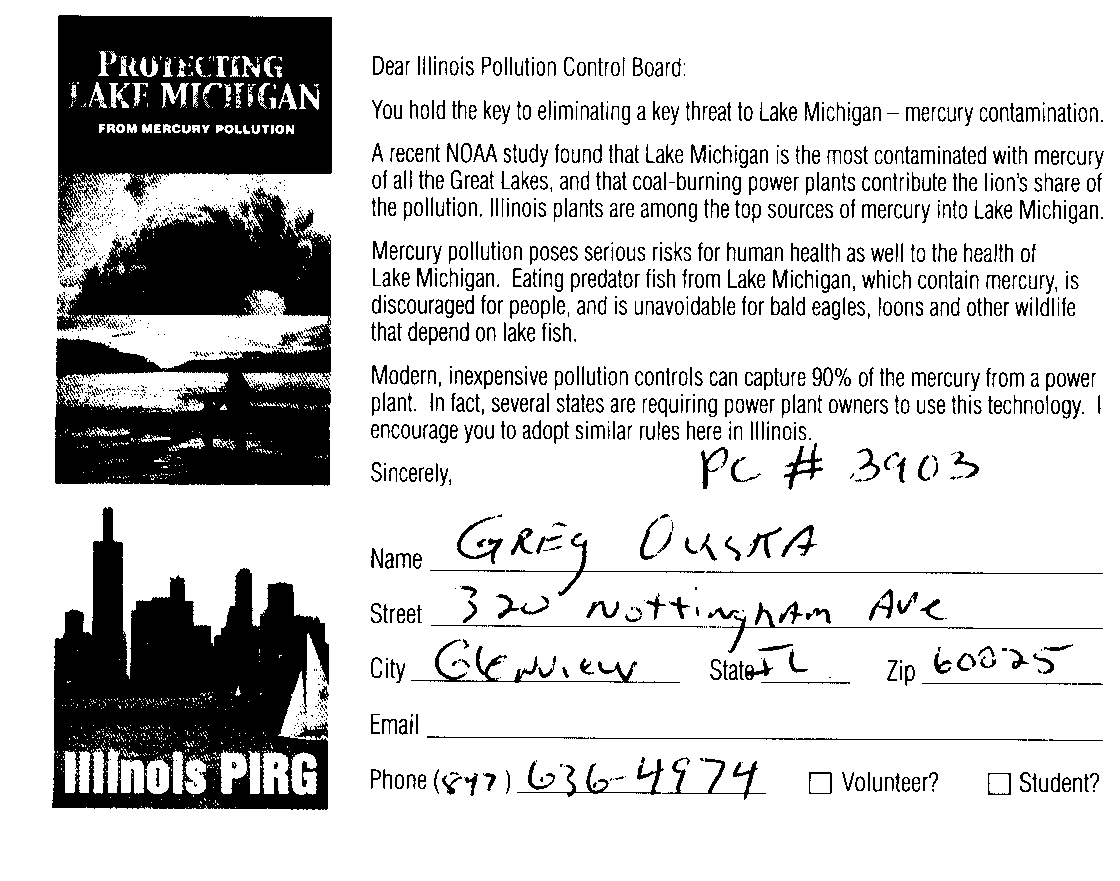 PROTECTING
LAKE MICHIGAN
FROM MERCURY POLLUTION
Illinois PIRG
Dear Illinois Pollution Control Board:
You hold the key to eliminating a key threat to Lake Michigan – mercury contamination.
A recent NOAA study found that Lake Michigan is the most contaminated with mercury
of all the Great Lakes, and that coal-burning power plants contribute the lion's share of
the pollution. Illinois plants are among the top sources of mercury into Lake Michigan.
Mercury pollution poses serious risks for human health as well to the health of
Lake Michigan. Eating predator fish from Lake Michigan, which contain mercury, is
discouraged for people, and is unavoidable for bald eagles, loons and other wildlife
that depend on lake fish.
Modern, inexpensive pollution controls can capture 90% of the mercury from a power
plant. In fact, several states are requiring power plant owners to use this technology. I
encourage you to adopt similar rules here in Illinois.
Sincerely,
PC # 3903
Name GREg OUSKA
Street 320 Nottingham Ave
City Glenview State IL Zip 60025
Email
Phone (847) 636-4974 Volunteer? Student?